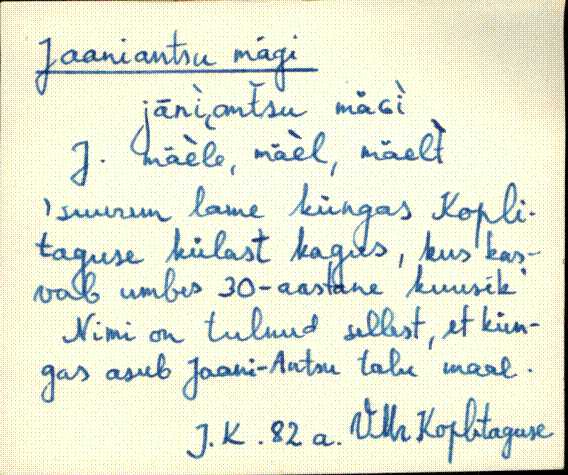 Jaaniantsu mägi
jāni̮ант̀su mäGì
J. mäèle, mäèl, mäelt̀
'suurem lame küngas Kopli-
taguse külast kagus, kus kas-
vab umbes 30-aastane kuusik'
Nimi on tulnud sellest, et kün-
gas asub Jaani-Antsu talu maal.
J. K. 82 a. VMr Koplitaguse